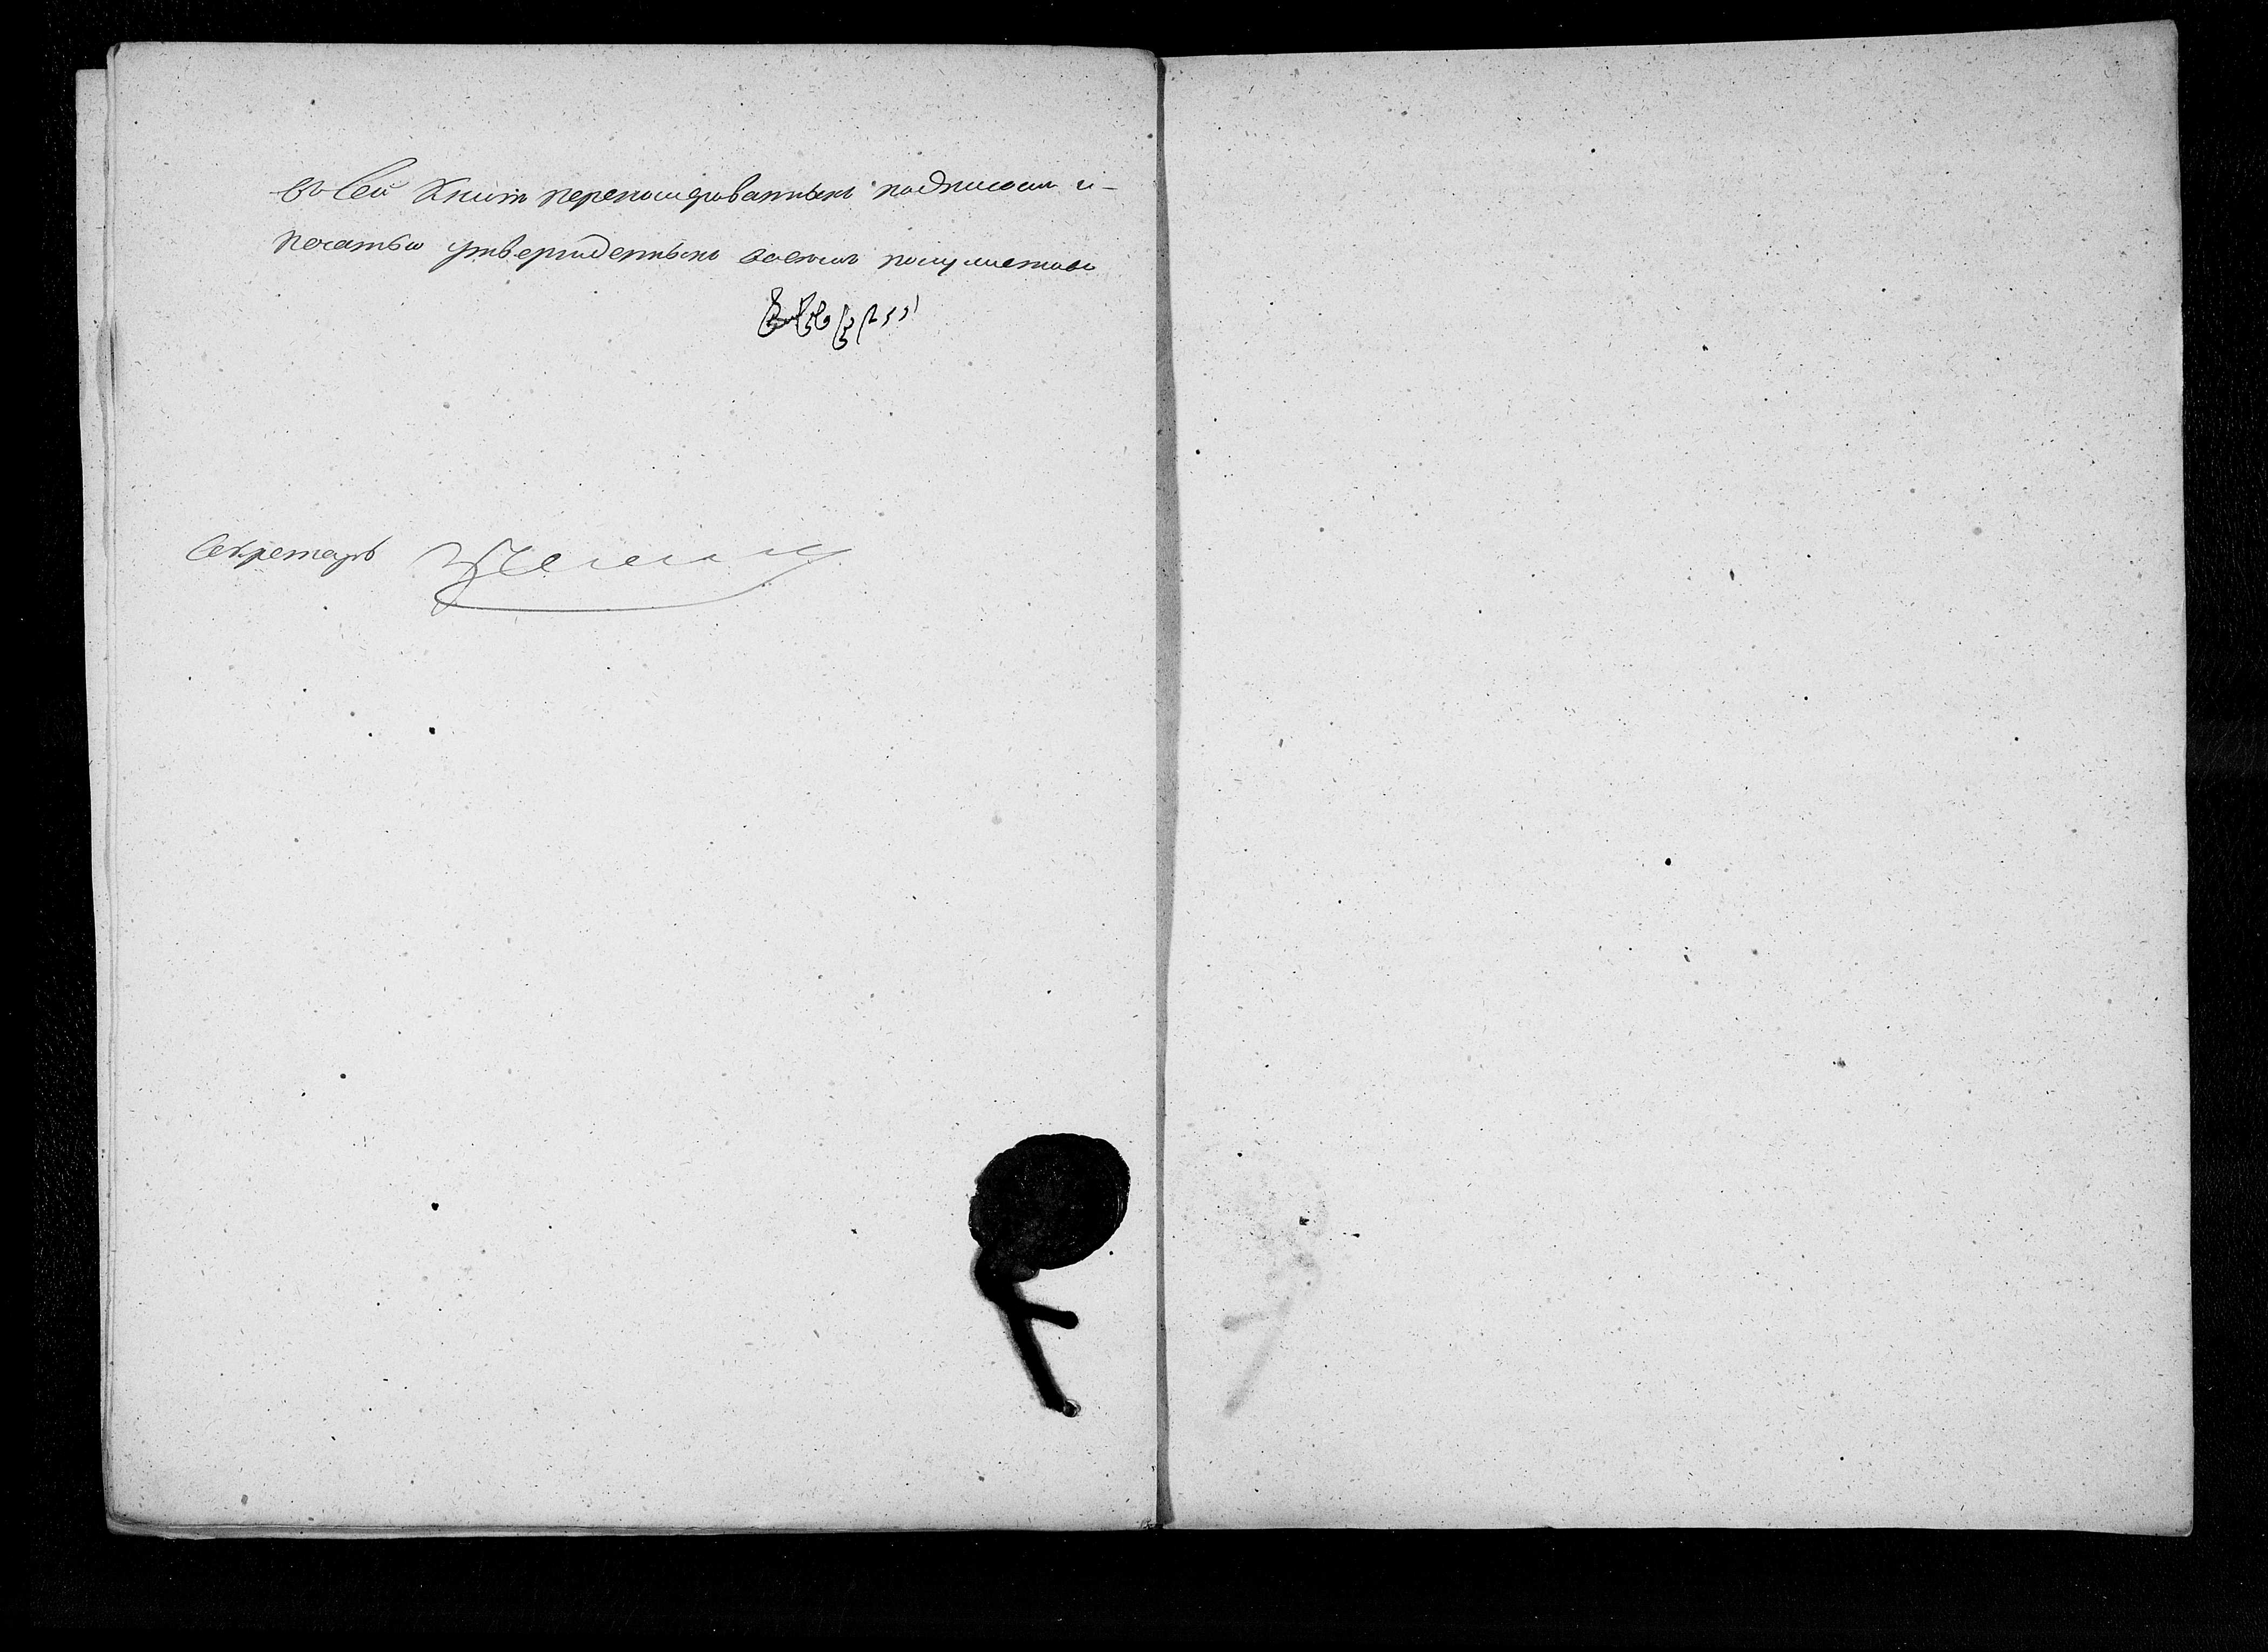 въ сей Книги переномерованныхъ подписом и-
печатью утвержденныхъ восемь полулистовъ
Секретарь